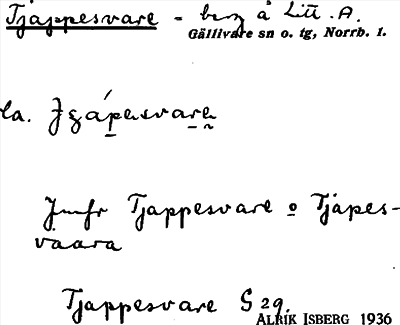 Tjappesvare - berg å Litt. A.
Gällivare sn o. tg, Norrb. l.
la. Jgápesvarea
Jmfr Tjappesvare o Tjåpes-
vaara
Tjappesvare S 29.
ALRIK ISBERG 1936